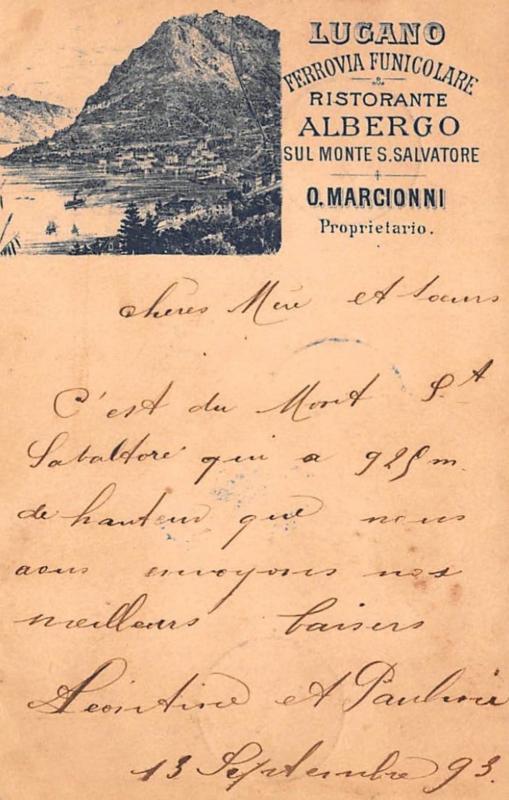 LUGANO
FERROVIA FUNICOLARE
RISTORANTE
ALBERGO
SUL MONTE S. SALVATORE
O. MARCIONNI
Proprietario.
Chères Mère et Soeurs
C'est du Mont St
Sabaltore qui a 925 m.
de hauteur que nous
vous envoyons nos
meilleurs baisers
Léontine et Pauline
13 Septembre 93.